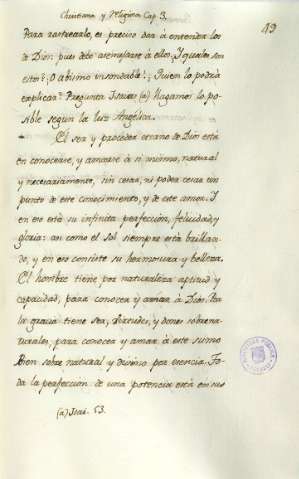 Christiana y Religiosa Cap. 3.
49
Para rastrearlo, es preciso dar à entender los
de Dios pues debe asemejarse à ellos. Y quales son
estos? O abismo insondable! ¿Quien lo podrà
explicar? Pregunta Isaias (a) Digamos lo po-
sible segun la luz Angélica.
El ser y proceder eterno de Dios està
en conocerse, y amarse à si mismo, natural
y necesariamente, sin cesar, ni poder cesar un
punto de este conocimiento, y de este amor. Y
en eso està su infinita perfeccion, felicidad y
gloria: asi como el Sol siempre està brillan-
do, y en eso consiste su hermosura y belleza.
El hombre tiene por naturaleza aptitud y
capacidad, para conocer y amar à Dios. Por
la gracia tiene ser, virtudes, y dones sobrena-
turales, para conocer y amar à este sumo
Bien sobrenatural y divino por esencia. To-
da la perfeccion de una potencia està en sus
(a) Isai. 53.